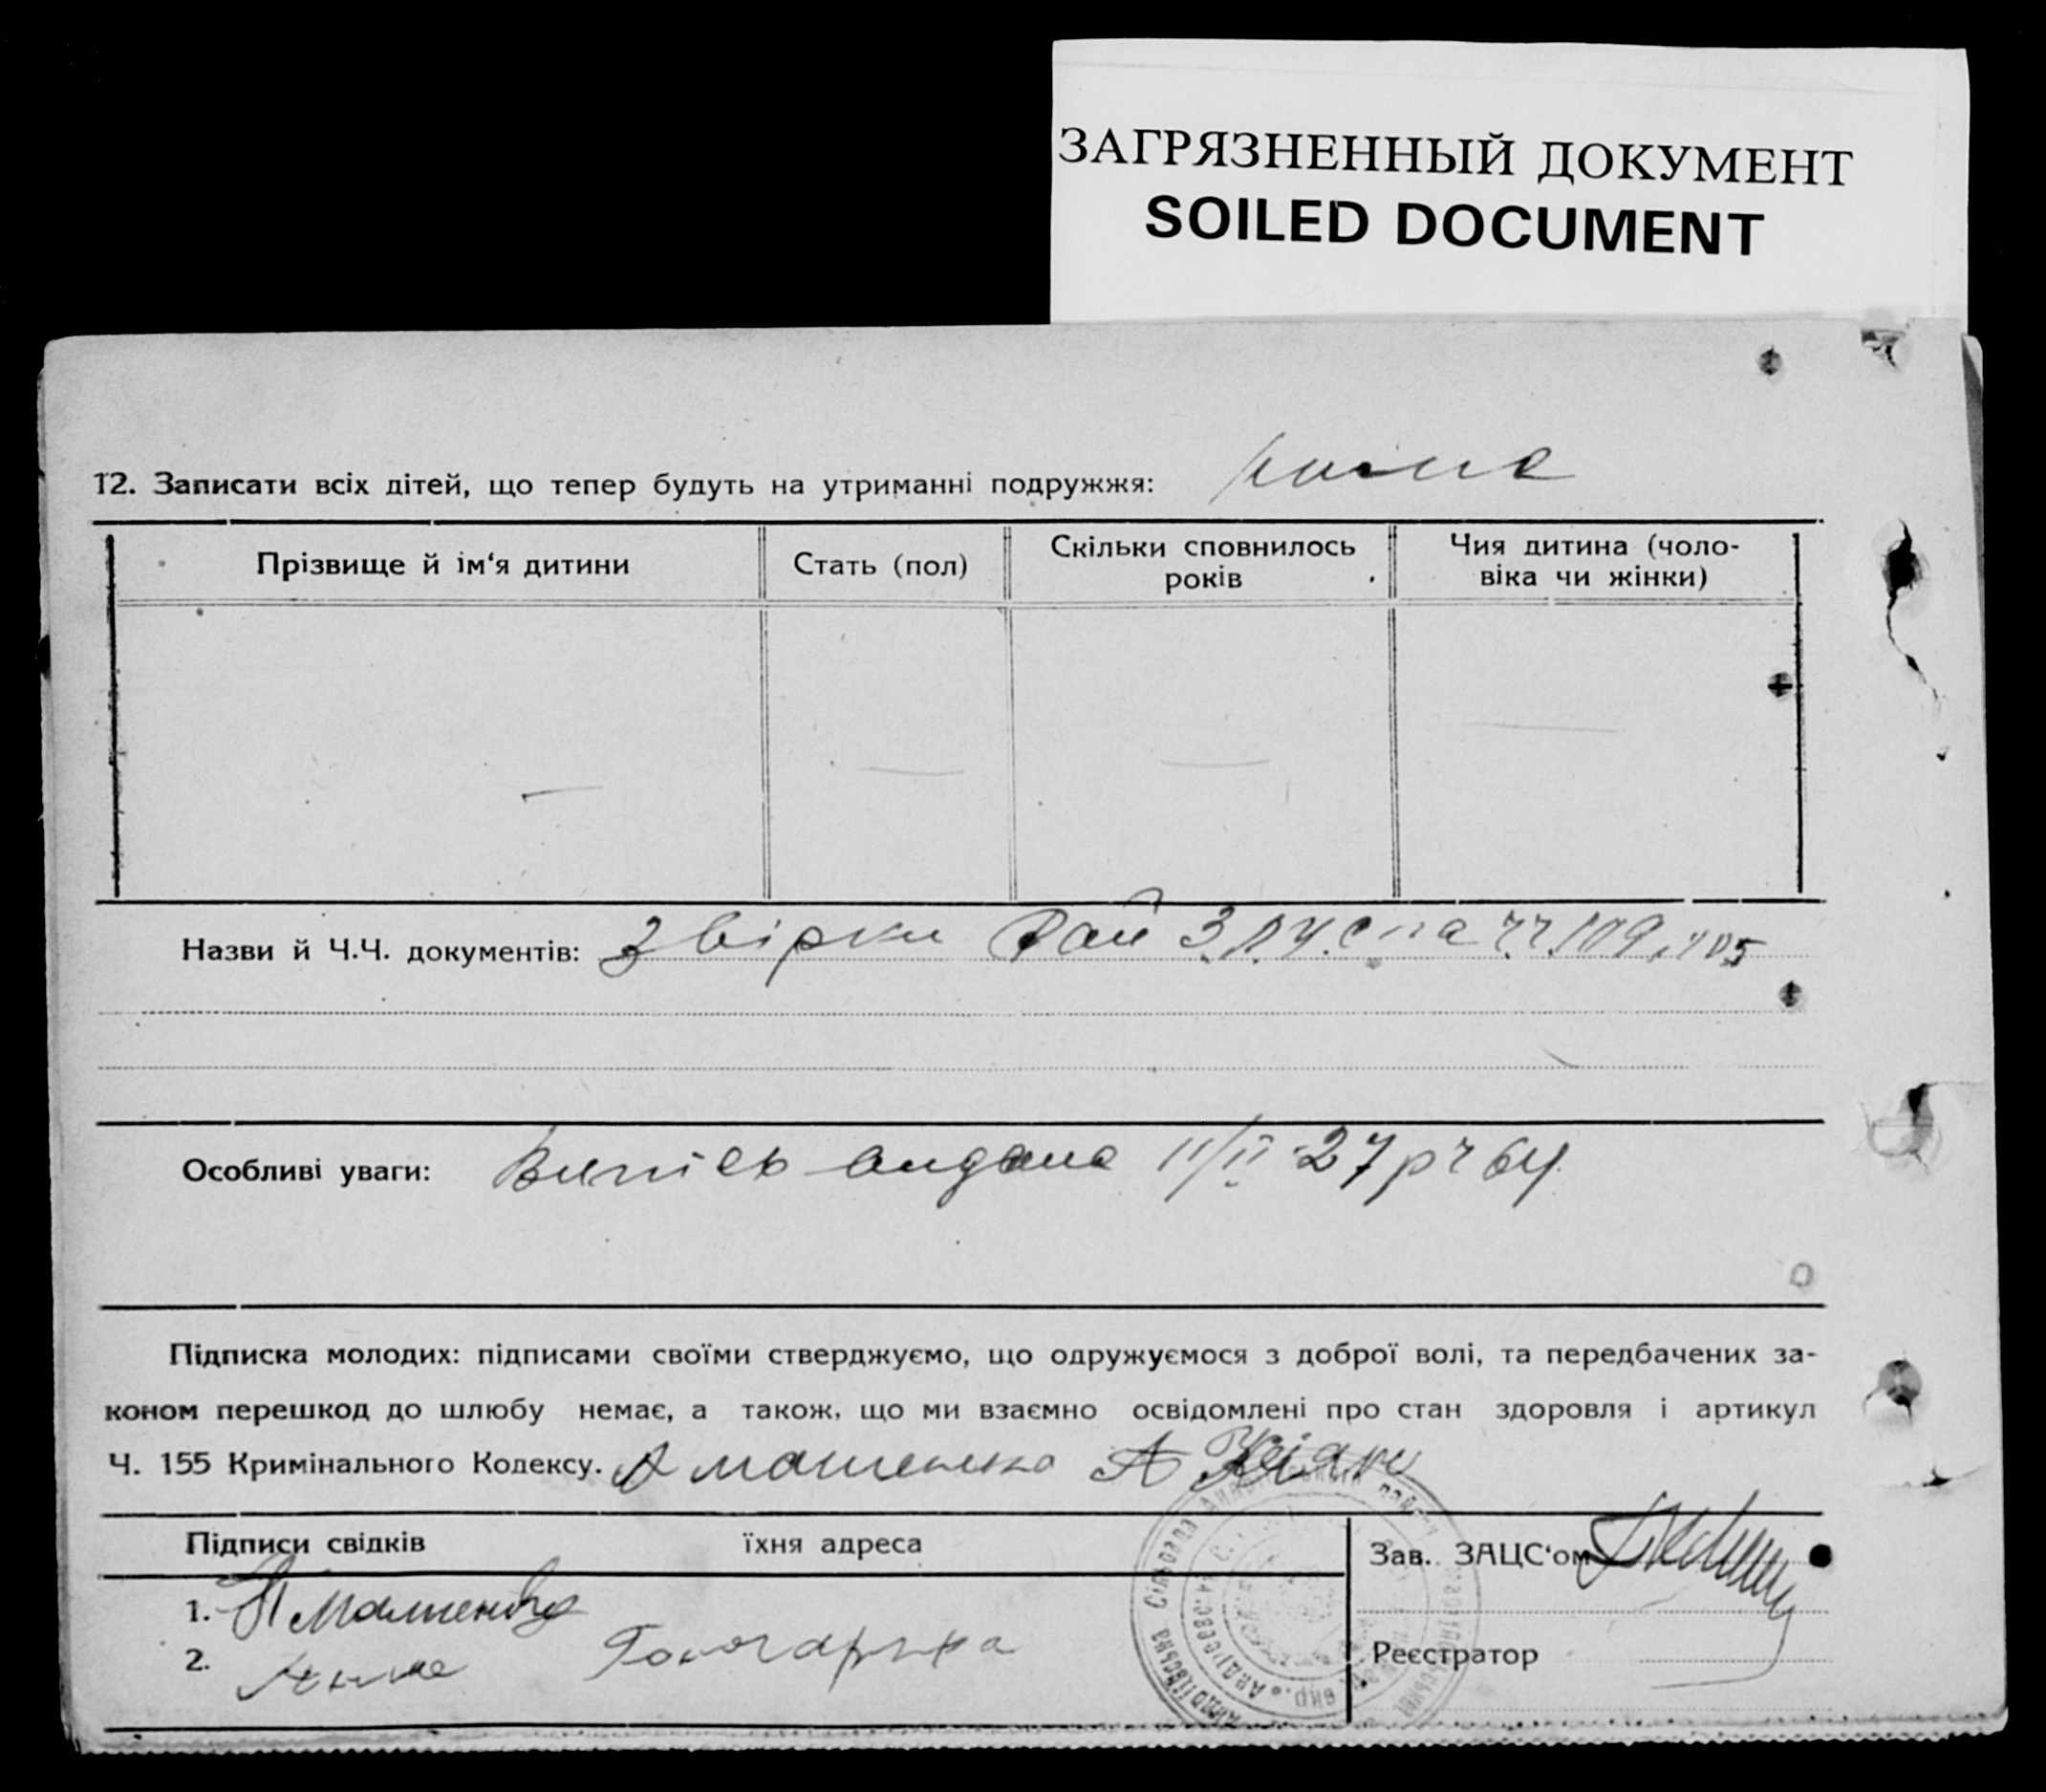 ЗАГРЯЗНЕННЫЙ ДОКУМЕНТ
SOILED DOCUMENT
12. Записати всіх дітей, що тепер будуть на утриманні подружжя:
Прізвище й ім‘я дитини
Стать (пол)
Скільки сповнилось
років
Чия дитина (чоло-
віка чи жінки)
Назви й Ч.Ч. документів: звірки Рай
Особливі уваги: Витісь видана 11/II 27 р ч 64
Підписка молодих: підписами своїми стверджуємо, що одружуємося з доброї волі, та передбачених за-
коном перешкод до шлюбу немає, а також, що ми взаємно освідомлені про стан здоровля і артикул
Ч. 155 Кримінального Кодексу.
Підписи свідків
їхня адреса
Зав. ЗАЦС‘ом
1.
2.
Реєстратор